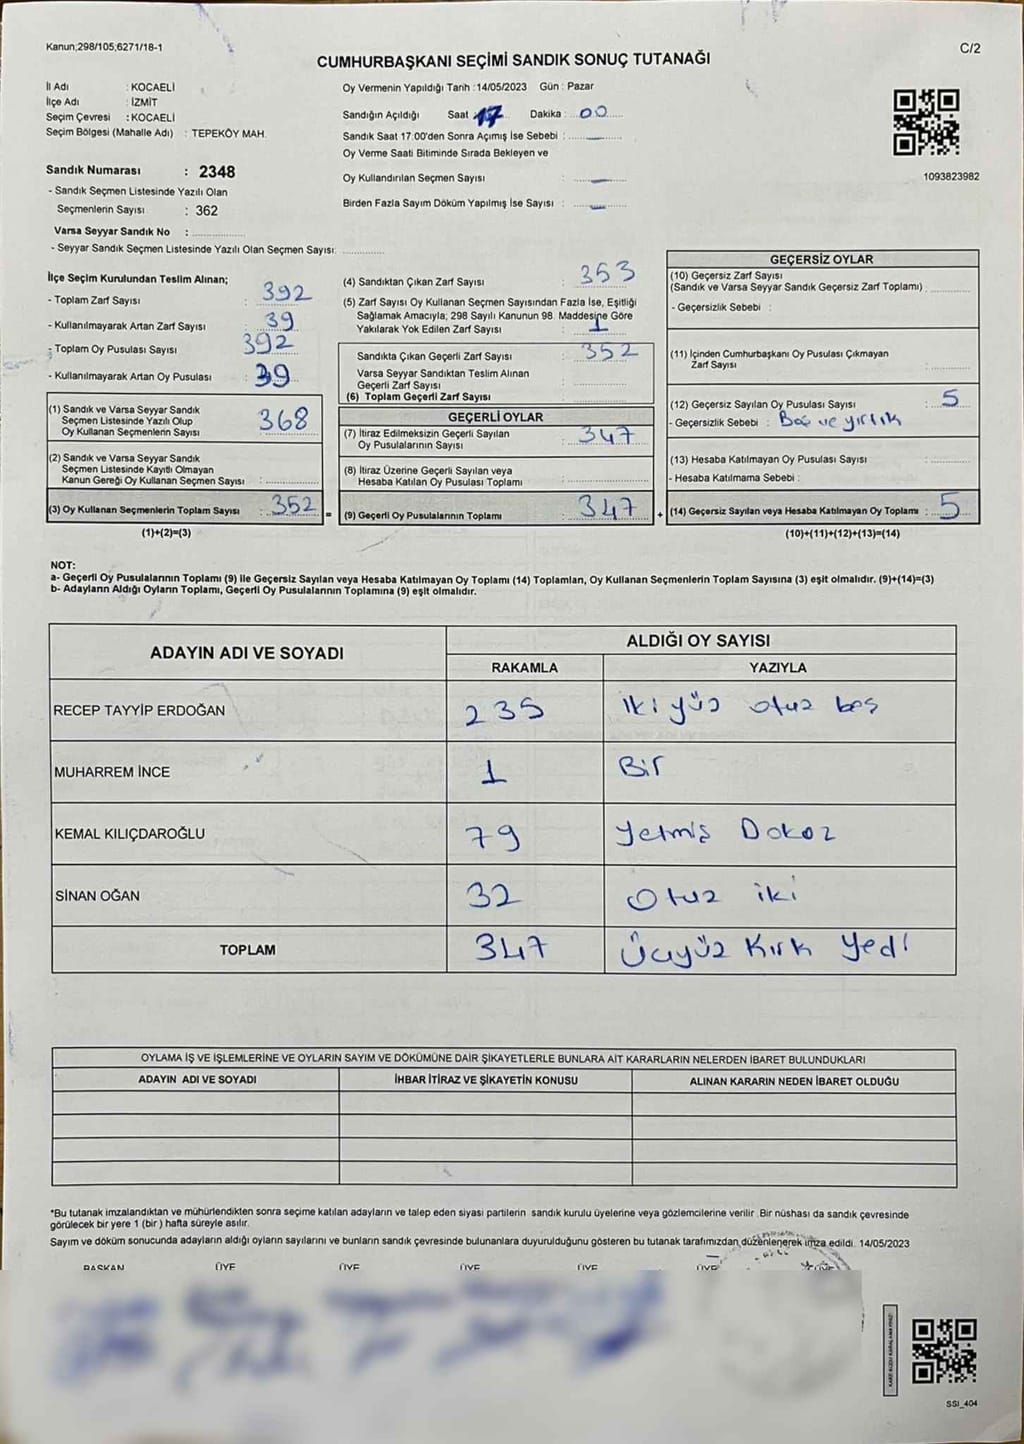 Kanun;298/105;6271/18-1
C/2
CUMHURBAŞKANI SEÇİMİ SANDIK SONUÇ TUTANAĞI
İl Adı : KOCAELİ
İlçe Adı : İZMİT
Seçim Çevresi : KOCAELİ
Seçim Bölgesi (Mahalle Adı) : TEPEKÖY MAH.
Sandık Numarası : 2348
- Sandık Seçmen Listesinde Yazılı Olan
Seçmenlerin Sayısı : 362
Varsa Seyyar Sandık No :
- Seyyar Sandık Seçmen Listesinde Yazılı Olan Seçmen Sayısı:
Oy Vermenin Yapıldığı Tarih :14/05/2023 Gün : Pazar
Sandığın Açıldığı Saat 17 Dakika : 00
Sandık Saat 17.00'den Sonra Açımış İse Sebebi :
Oy Verme Saati Bitiminde Sırada Bekleyen ve
Oy Kullandırılan Seçmen Sayısı :
Birden Fazla Sayım Döküm Yapılmış İse Sayısı :
1093823982
İlçe Seçim Kurulundan Teslim Alınan;
- Toplam Zarf Sayısı : 392
- Kullanılmayarak Artan Zarf Sayısı : 39
- Toplam Oy Pusulası Sayısı : 392
- Kullanılmayarak Artan Oy Pusulası : 39
(1) Sandık ve Varsa Seyyar Sandık
Seçmen Listesinde Yazılı Olup
Oy Kullanan Seçmenlerin Sayısı : 368
(2) Sandık ve Varsa Seyyar Sandık
Seçmen Listesinde Kayıtlı Olmayan
Kanun Gereği Oy Kullanan Seçmen Sayısı :
(3) Oy Kullanan Seçmenlerin Toplam Sayısı : 352 =
(1)+(2)=(3)
(4) Sandıktan Çıkan Zarf Sayısı : 353
(5) Zarf Sayısı Oy Kullanan Seçmen Sayısından Fazla İse, Eşitliği
Sağlamak Amacıyla; 298 Sayılı Kanunun 98. Maddesine Göre
Yakılarak Yok Edilen Zarf Sayısı : 1
Sandıkta Çıkan Geçerli Zarf Sayısı : 352
Varsa Seyyar Sandıktan Teslim Alınan
Geçerli Zarf Sayısı :
(6) Toplam Geçerli Zarf Sayısı :
GEÇERLİ OYLAR
(7) İtiraz Edilmeksizin Geçerli Sayılan
Oy Pusulalarının Sayısı : 347
(8) İtiraz Üzerine Geçerli Sayılan veya
Hesaba Katılan Oy Pusulası Toplamı :
(9) Geçerli Oy Pusulalarının Toplamı : 347 +
GEÇERSİZ OYLAR
(10) Geçersiz Zarf Sayısı
(Sandık ve Varsa Seyyar Sandık Geçersiz Zarf Toplamı) :
- Geçersizlik Sebebi :
(11) İçinden Cumhurbaşkanı Oy Pusulası Çıkmayan
Zarf Sayısı :
(12) Geçersiz Sayılan Oy Pusulası Sayısı : 5
- Geçersizlik Sebebi : Boş ve yırtık
(13) Hesaba Katılmayan Oy Pusulası Sayısı :
- Hesaba Katılmama Sebebi :
(14) Geçersiz Sayılan veya Hesaba Katılmayan Oy Toplamı : 5
(10)+(11)+(12)+(13)=(14)
NOT:
a- Geçerli Oy Pusulalarının Toplamı (9) ile Geçersiz Sayılan veya Hesaba Katılmayan Oy Toplamı (14) Toplamları, Oy Kullanan Seçmenlerin Toplam Sayısına (3) eşit olmalıdır. (9)+(14)=(3)
b- Adayların Aldığı Oyların Toplamı, Geçerli Oy Pusulalarının Toplamına (9) eşit olmalıdır.
ADAYIN ADI VE SOYADI ALDIĞI OY SAYISI
RAKAMLA YAZIYLA
RECEP TAYYİP ERDOĞAN 235 iki yüz otuz beş
MUHARREM İNCE 1 Bir
KEMAL KILIÇDAROĞLU 79 Yetmiş Dokoz
SİNAN OĞAN 32 Otuz iki
TOPLAM 347 Üçyüz Kırk Yedi
OYLAMA İŞ VE İŞLEMLERİNE VE OYLARIN SAYIM VE DÖKÜMÜNE DAİR ŞİKAYETLERLE BUNLARA AİT KARARLARIN NELERDEN İBARET BULUNDUKLARI
ADAYIN ADI VE SOYADI İHBAR İTİRAZ VE ŞİKAYETİN KONUSU ALINAN KARARIN NEDEN İBARET OLDUĞU
*Bu tutanak imzalandıktan ve mühürlendikten sonra seçime katılan adayların ve talep eden siyasi partilerin sandık kurulu üyelerine veya gözlemcilerine verilir. Bir nüshası da sandık çevresinde
görülecek bir yere 1 (bir) hafta süreyle asılır.
Sayım ve döküm sonucunda adayların aldığı oyların sayılarını ve bunların sandık çevresinde bulunanlara duyurulduğunu gösteren bu tutanak tarafımızdan düzenlenerek imza edildi. 14/05/2023
BAŞKAN ÜYE ÜYE ÜYE ÜYE ÜYE ÜYE
SSI_404